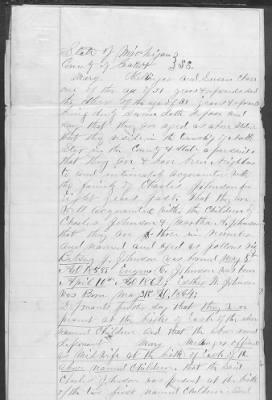 State of Michigan
County of Eaton } SS.
Mary and Susan
one of the age of 51 years & upwards and
the other of the age of 31 years & upwards
being duly sworn doth depose and
say that they are aged as above stated
that they reside in the Township of
in the County & State aforesaid
that they are & have been neighbors
to and intimately acquainted with
the family of Charles Johnson for
eight years past. That they are
well acquainted with the Children of
Charles Johnson & Martha Johnson
that they are three in number
and named and aged as follows viz
J. Johnson was born May 5th
AD 1858 Eugene C. Johnson was born
April 10th AD 1862; Esther M. Johnson
was Born May 28th AD 1864;
Deponents further say that they were
present at the birth of each of the above
named Children and that the above named
deponent Mary officiated
as Midwife at the birth of each of the
above named Children that the said
Charles Johnson was present at the birth
of the two first named Children and